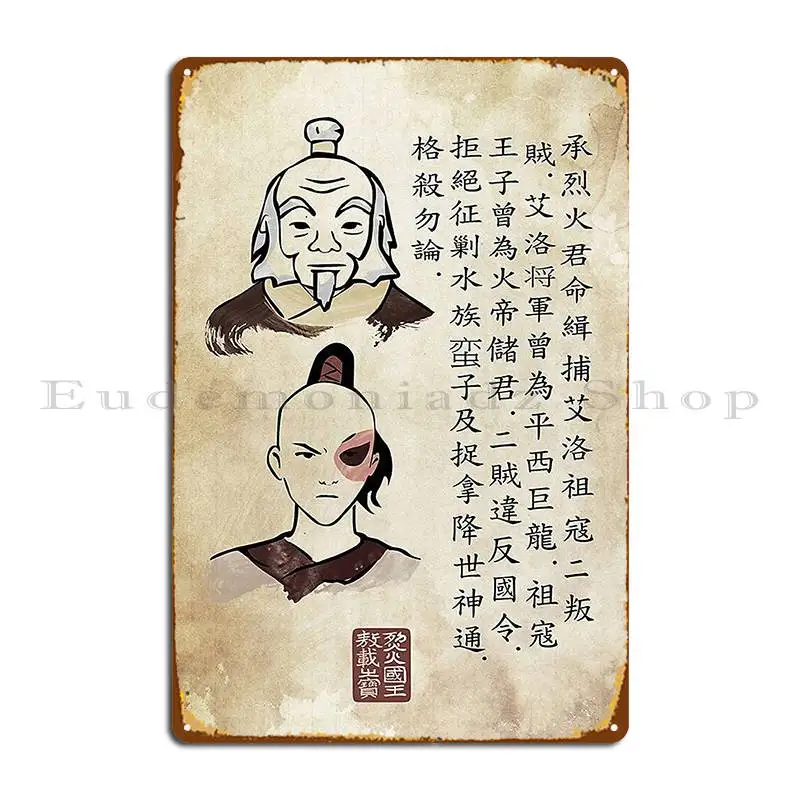 承烈火君命緝捕艾洛祖寇二叛
賊．艾洛将軍曾為平西巨龍．祖寇
王子曾為火帝儲君．二賊違反國令．
拒絕征剿水族蛮子及捉拿降世神通．
格殺勿論．
烈火國王
敖載之寶
Eudemoniadz Shop